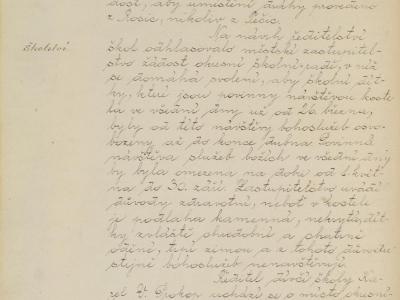 dost, aby umístění dráhy provedeno
z Rosic, nikoliv z Řečic.
Na návrh ředitelství
Školství.
škol odhlasovalo městské zastupitel-
stvo žádost okresní školní radě, v níž
se domáhá svolení, aby školní dít-
ky, které jsou povinny návštěvou koste-
la ve všední dny už od 26. března,
byly od této návštěvy bohoslužeb osvo-
bozeny až do konce dubna. Povinná
návštěva služeb božích ve všední dny
by byla omezena na dobu od 1. květ-
na do 30. září. Zastupitelstvo uvádí
důvody zdravotní, neboť v kostele
je podlaha kamenná, nekrytá, dít-
ky zvláště chudobné a chatrně
oděné, trpí zimou a z tohoto důvodu
stejně bohoslužeb nenavštěvují.
Ředitel dívčí školy Ka-
rel V. Prokop uchází se o místo okresní-